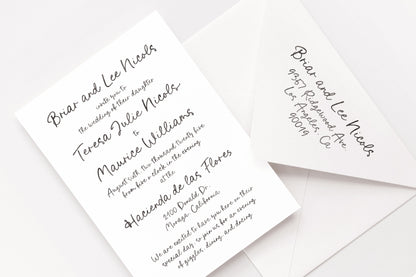 Briar and Lee Nicols
invite you to
the wedding of their daughter
Teresa Julie Nicols
to
Maurice Williams
August 10th, two thousand twenty five
from five o clock in the evening
at the
Hacienda de las Flores
2100 Donald Dr.
Moraga, California
We are excited to have you here on their
special day, so join us for an evening
of giggles, dining, and dating.
Briar and Lee Nicols
9357 Ridgewood Ave
Los Angeles, Ca
90019